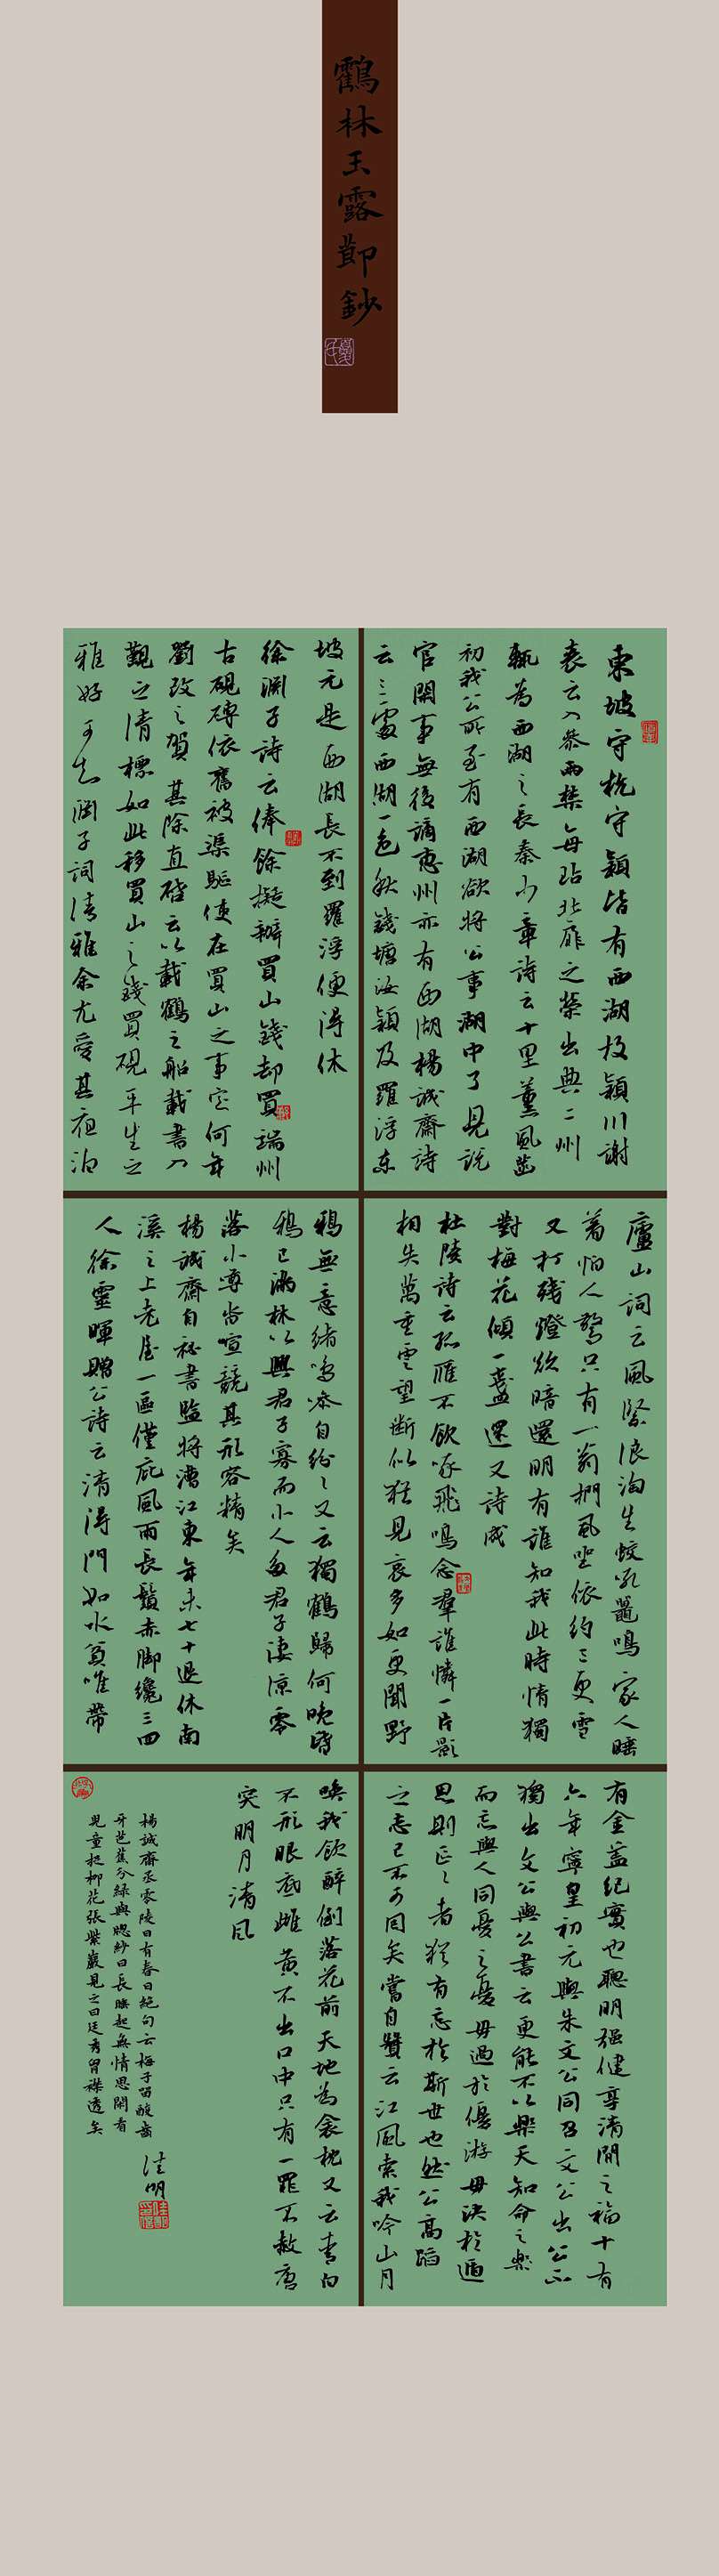 鶴林玉露節鈔
東坡守杭守潁皆有西湖故潁川謝
表云入參兩禁每玷北扉之榮出典二州
輒為西湖之長秦少章詩云十里薰風菡
初我公所至有西湖欲將公事湖中了見說
官閑事每後謫惠州亦有西湖楊誠齋詩
云三處西湖一色秋錢塘汝潁及羅浮東
坡元是西湖長不到羅浮便得休
徐淵子詩云俸餘擬辦買山錢却買端州
古硯磚依舊被渠驅使在買山之事定何年
劉改之賀其除直啓云以載鶴之船載書入
覲之清標如此移買山之錢買硯平生之
雅好可知淵子詞清雅余尤愛其夜泊
廬山詞云風緊浪淘生蛟吼鼉鳴家人睡
着怕人驚只有一翁捫虱坐依約三更雪
又打殘燈欲暗還明有誰知我此時情獨
對梅花傾一盞還又詩成
杜陵詩云孤雁不飲啄飛鳴念羣誰憐一片影
相失萬重雲望斷似猶見哀多如更聞野
鴉無意緒鳴噪自紛紛又云獨鶴歸何晚昏
鴉已滿林以興君子寡而小人多君子淒涼零
落小尊沓喧競其形容精矣
楊誠齋自秘書監將漕江東年未七十退休南
溪之上老屋一區僅庇風雨長鬚赤脚纔三四
人徐靈暉贈公詩云清得門如水貧唯帶
有金蓋紀實也聰明强健享清閒之福十有
六年寧皇初元與朱文公同召文公出公不
獨出文公與公書云更能不以樂天知命之樂
而忘與人同憂之憂毋過於優游毋決於遁
思則區區者猶有忘於斯世也然公高蹈
之志已不可回矣嘗自贊云江風索我吟山月
喚我飲醉倒落花前天地為衾枕又云青白
不形眼底雌黃不出口中只有一罪不赦唐
突明月清風
楊誠齋丞零陵日有春日絕句云梅子留酸齒
牙芭蕉分綠與牕紗日長睡起無情思閑看
兒童捉柳花張紫巖見之曰廷秀胷襟透矣
佳明